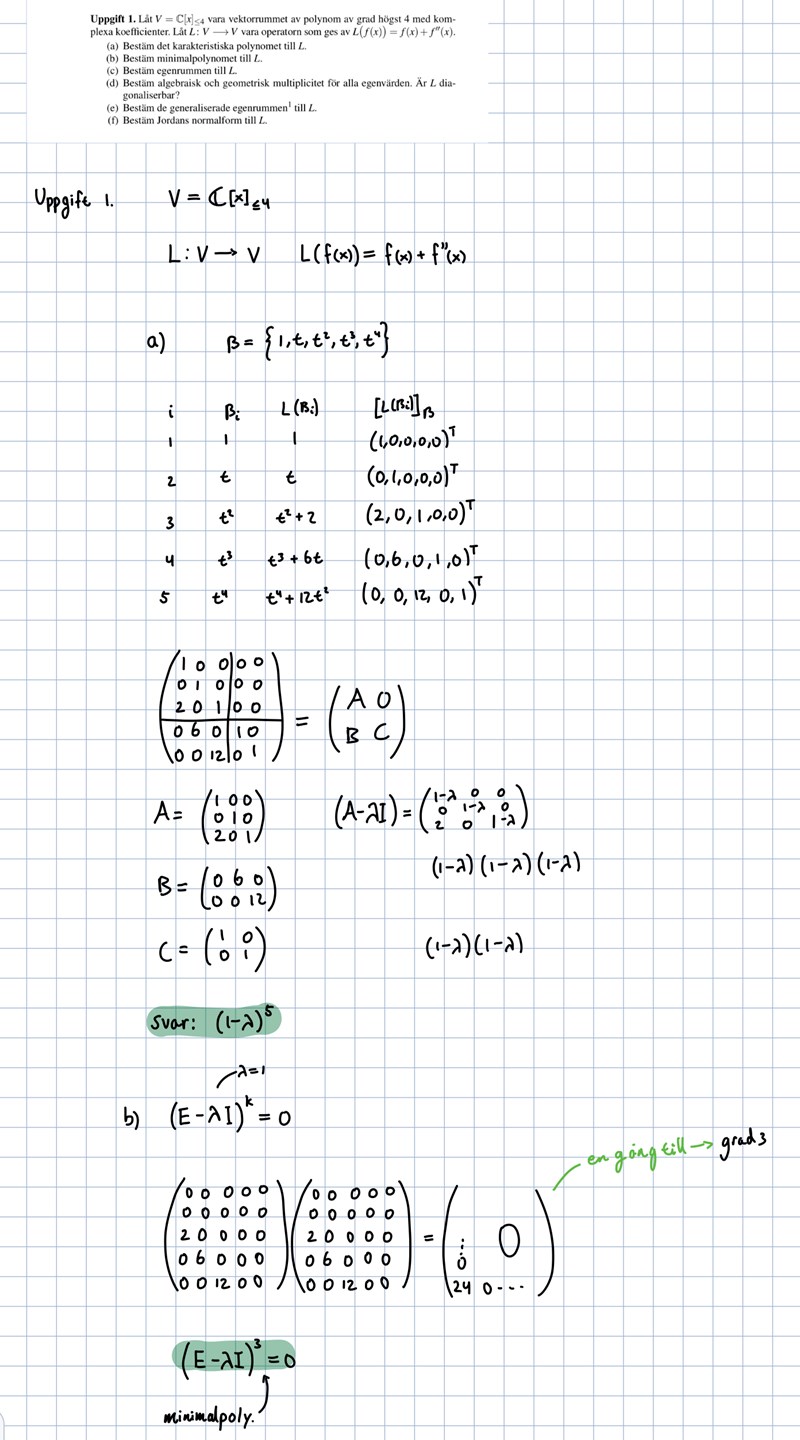 Uppgift 1. Låt V = ℂ[x]≤4 vara vektorrummet av polynom av grad högst 4 med kom-
plexa koefficienter. Låt L: V ⟶ V vara operatorn som ges av L(f(x)) = f(x) + f″(x).
(a) Bestäm det karakteristiska polynomet till L.
(b) Bestäm minimalpolynomet till L.
(c) Bestäm egenrummen till L.
(d) Bestäm algebraisk och geometrisk multiplicitet för alla egenvärden. Är L dia-
gonaliserbar?
(e) Bestäm de generaliserade egenrummen¹ till L.
(f) Bestäm Jordans normalform till L.
Uppgift 1. V = ℂ[x]≤4
L: V → V L(f(x)) = f(x) + f″(x)
a) β = {1, t, t², t³, t⁴}
i βi L(βi) [L(βi)]β
1 1 1 (1,0,0,0,0)ᵀ
2 t t (0,1,0,0,0)ᵀ
3 t² t²+2 (2,0,1,0,0)ᵀ
4 t³ t³+6t (0,6,0,1,0)ᵀ
5 t⁴ t⁴+12t² (0,0,12,0,1)ᵀ
1 0 0 0 0
0 1 0 0 0
2 0 1 0 0 = (A 0
0 6 0 1 0 B C)
0 0 12 0 1
A = (1 0 0 (A-λI) = (1-λ 0 0
0 1 0 0 1-λ 0
2 0 1) 2 0 1-λ)
(1-λ)(1-λ)(1-λ)
B = (0 6 0
0 0 12)
C = (1 0 (1-λ)(1-λ)
0 1)
svar: (1-λ)⁵
λ=1
b) (E-λI)ᵏ = 0
en gång till → grad 3
0 0 0 0 0 0 0 0 0 0
0 0 0 0 0 0 0 0 0 0
2 0 0 0 0 2 0 0 0 0 = ⋮ 0
0 6 0 0 0 0 6 0 0 0 0
0 0 12 0 0 0 0 12 0 0 24 0 ---
(E-λI)³ = 0
minimalpoly.